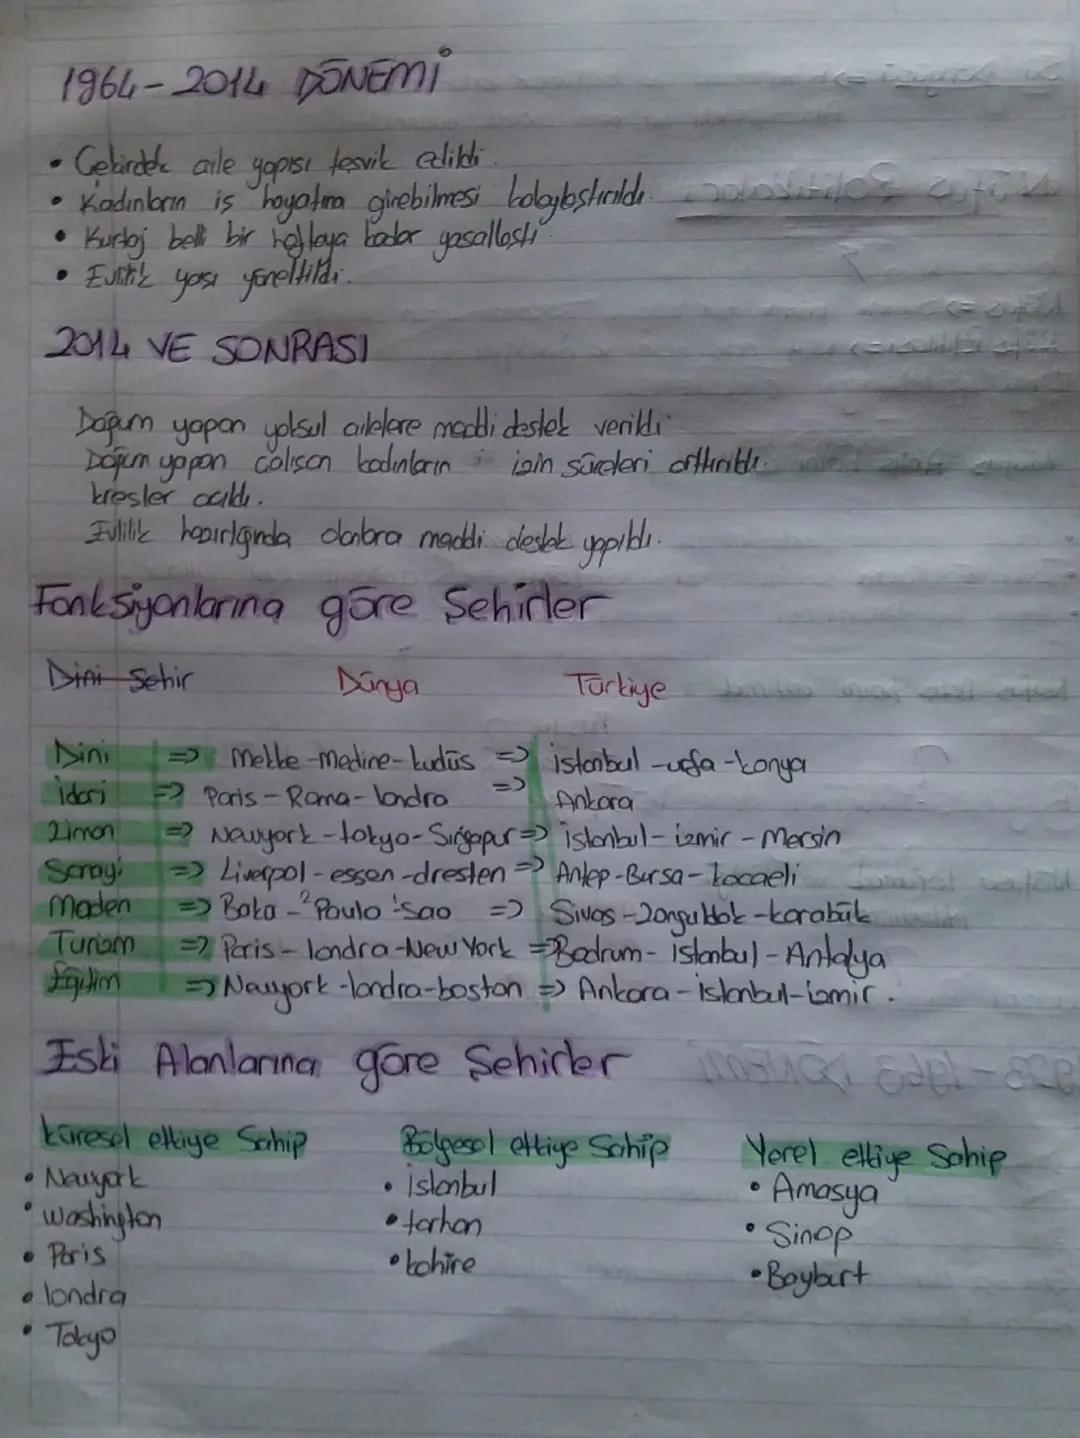 1964-2014 DÖNEMİ
• Çekirdek aile yapısı tesvik edildi.
• Kadınların is hayatına girebilmesi kolaylastırıldı.
• Kürtaj belli bir haftaya kadar yasallastı.
• Evlilik yası yöneltildi.
2014 VE SONRASI
Doğum yapan yoksul ailelere maddi destek verildi
Doğum yapan calısan kadınların izin süreleri arttırıldı.
kresler acıldı.
Evlilik hazırlığında olanlara maddi destek yapıldı.
Fonksiyonlarına göre Sehirler
Dini Sehir Dünya Türkiye
Dini => Mekke-Medine-kudüs => istanbul-urfa-konya
idari => Paris-Roma-londra => Ankara
Liman => Newyork-tokyo-Singapur => istanbul-izmir-Mersin
Sanayi => Liverpol-essen-dresten => Antep-Bursa-kocaeli
Maden => Bakü -²Paulo ¹Sao => Sivas-Zonguldak-karabük
Turizm => Paris-londra-New York => Bodrum-istanbul-Antalya
Eğitim => Newyork-londra-boston => Ankara-istanbul-izmir.
Eski Alanlarına göre Sehirler
küresel etkiye Sahip Bölgesel etkiye Sahip Yerel etkiye Sahip
• Newyork • istanbul • Amasya
• washington • tarhan • Sinop
• Paris • kahire • Bayburt
• londra
• Tokyo